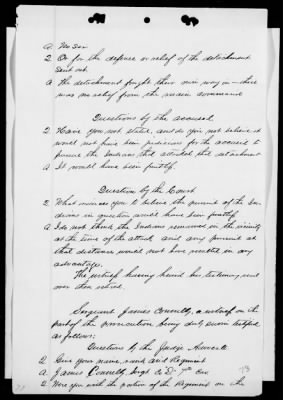 A No Sir
Q Or for the defense or relief of the detachment
sent out.
A The detachment fought their own way in - there
was no relief from the main command
Questions by the accused
Q Have you not stated, and do you not believe it
would not have been judicious for the accused to
pursue the Indians that attacked this detachment
A It would have been fruitless.
Question by the Court
Q What induces you to believe the pursuit of the In-
dians in question would have been fruitless
A I do not think the Indians remained in the vicinity
at the time of the attack and any pursuit at
that distance would not have resulted in any
advantage.
The witness having heard his testimony read
over then retired.
Sergeant James Connelly, a witness on the
part of the prosecution being duly sworn testified
as follows:
Questions by the Judge Advocate
Q Give your name, rank and Regiment
A James Connelly, Sergt Co "D" 7th Cav
Q Were you with the portion of the Regiment on the
73